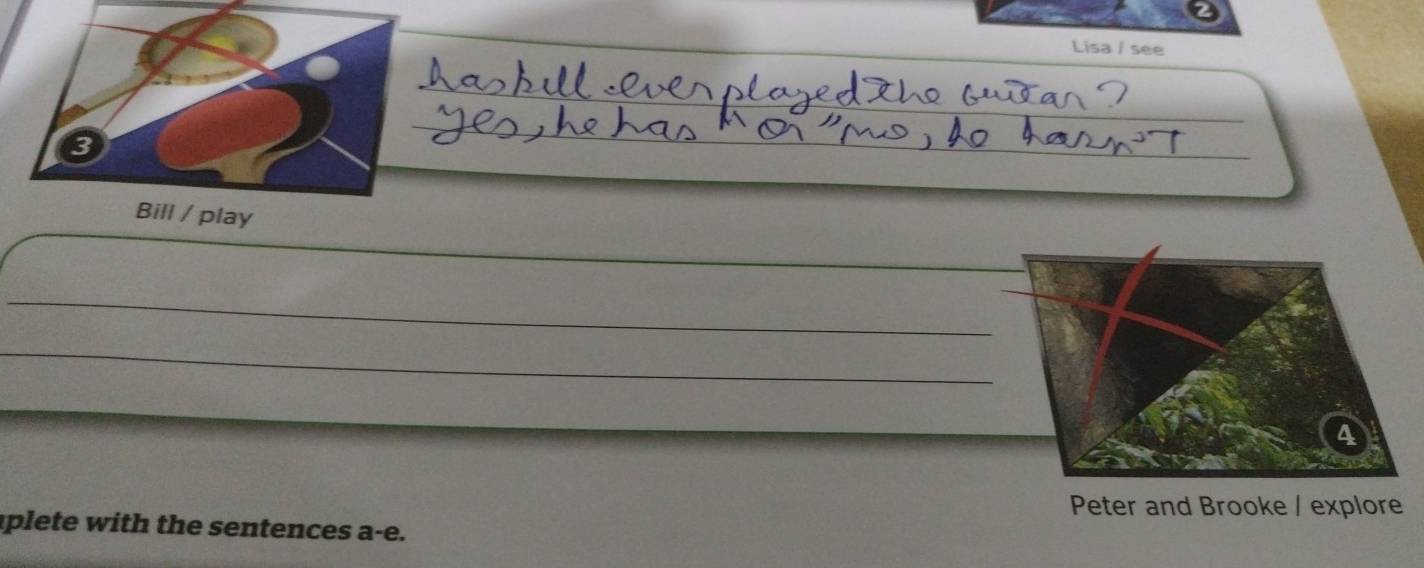 2
Lisa / see
has bill ever played the guitar?
yes, he has " or "no, he hasn't
3
Bill / play
4
Peter and Brooke / explore
plete with the sentences a-e.